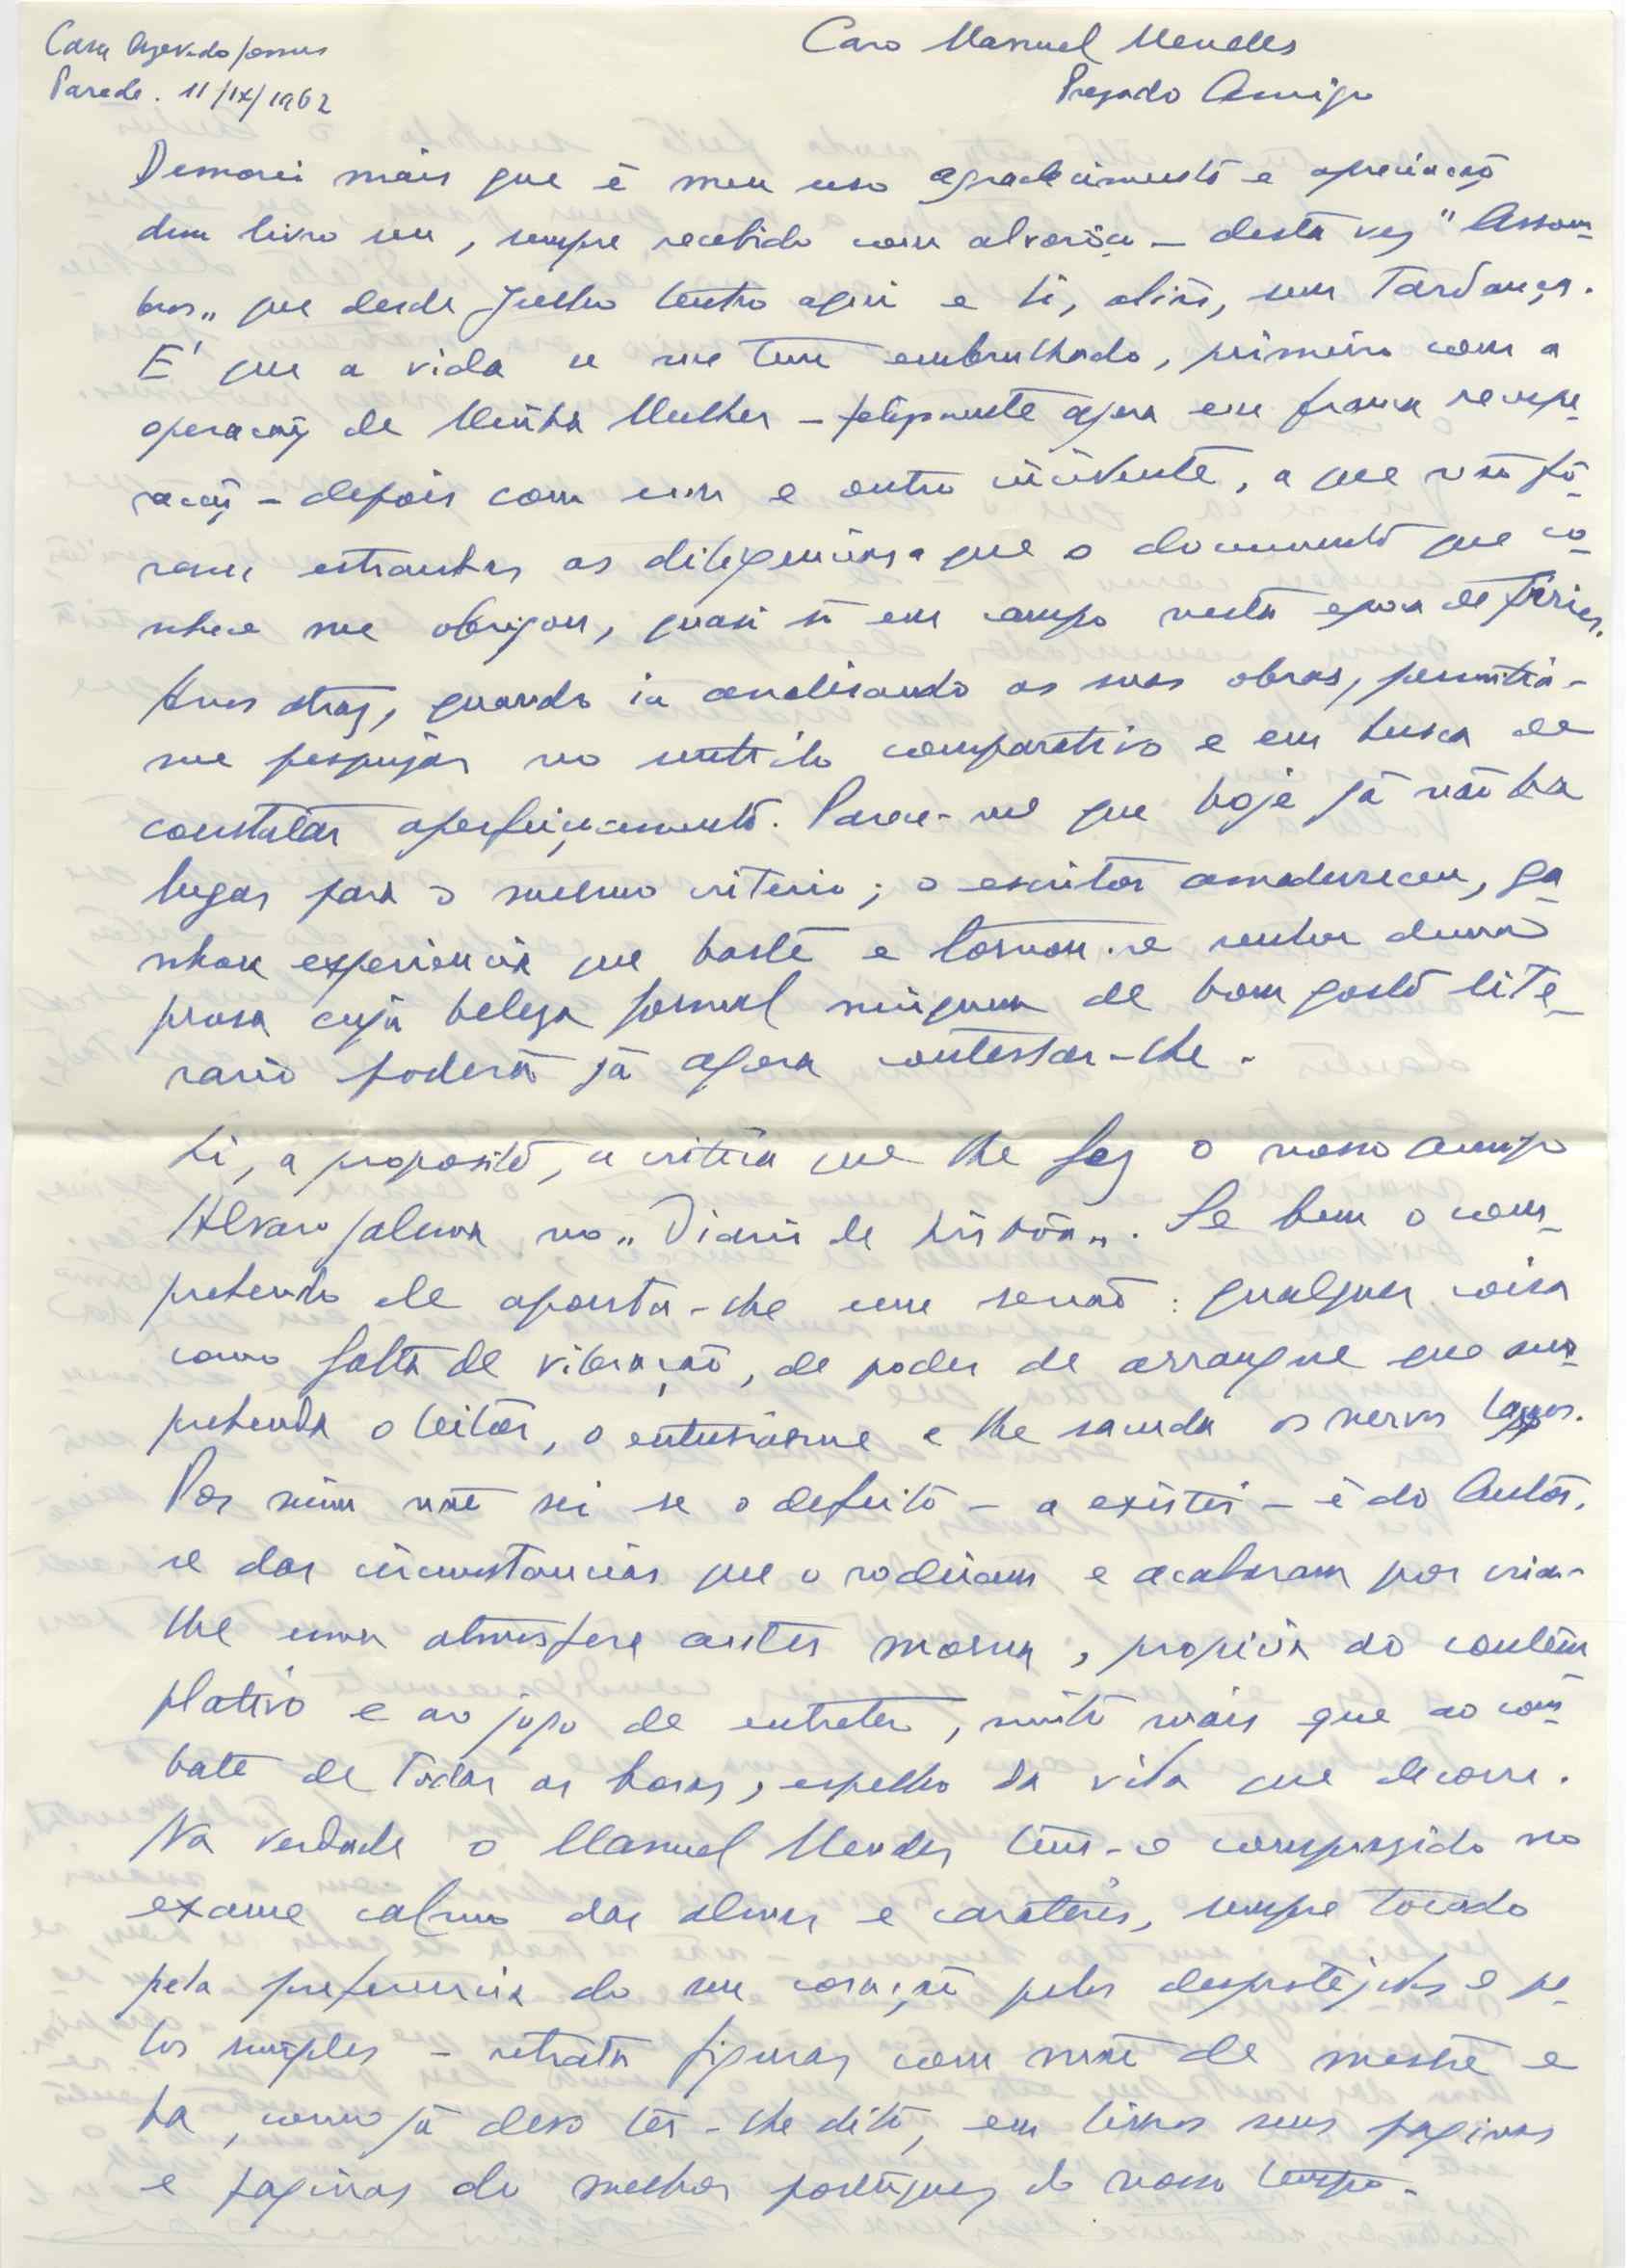 Casa Azevedo Gomes
Parede. 11/IX/1962
Caro Manuel Mendes
Prezado Amigo
Demorei mais que é meu uso agradecimento e apreciação
dum livro seu, sempre recebido com alvoroço – desta vez "Assom-
bros" que desde Julho tenho aqui e li, aliás, sem tardança.
E' que a vida se me tem embrulhado, primeiro com a
operação de Minha Mulher – felizmente agora em franca recupe-
ração – depois com um e outro incidente, a que não fô-
ram estranhas as diligencias a que o documento que co-
nhece me obrigou, quasi só em campo nesta epoca de férias.
Anos atraz, quando ia analisando as suas obras, permitia-
me respigar no sentido comparativo e em busca de
constatar aperfeiçoamento. Parece-me que hoje já não ha
lugar para o mesmo criterio; o escritor amadureceu, ga-
nhou experiencia que baste e tornou-se senhor duma
prosa cuja beleza formal ninguem de bom gosto lite-
rario poderá já agora contestar-lhe.
Li, a proposito, a critica que lhe fez o nosso amigo
Alvaro Salema no "Diario de Lisbôa". Se bem o com-
preendo ele aponta-lhe um senão: qualquer coisa
como falta de vibração, de poder de arranque que sur-
preenda o leitor, o entusiasme e lhe sacuda os nervos lassos.
Por mim não sei se o defeito – a existir – é do Autor,
se das circunstancias que o rodeiam e acabaram por criar-
lhe uma atmosfera antes morna, propicia ao contem-
plativo e ao jogo de entreter, muito mais que ao com-
bate de todas as horas, espelho da vida que decorre.
Na verdade o Manuel Mendes tem-se comprazido no
exame calmo das almas e carateres, sempre tocado
pela preferencia do seu coração pelos desprotejidos e pe-
los simples – retrata figuras com mão de mestre e
ha, como já devo ter-lhe dito, em livros seus paginas
e paginas do melhor português do nosso tempo.